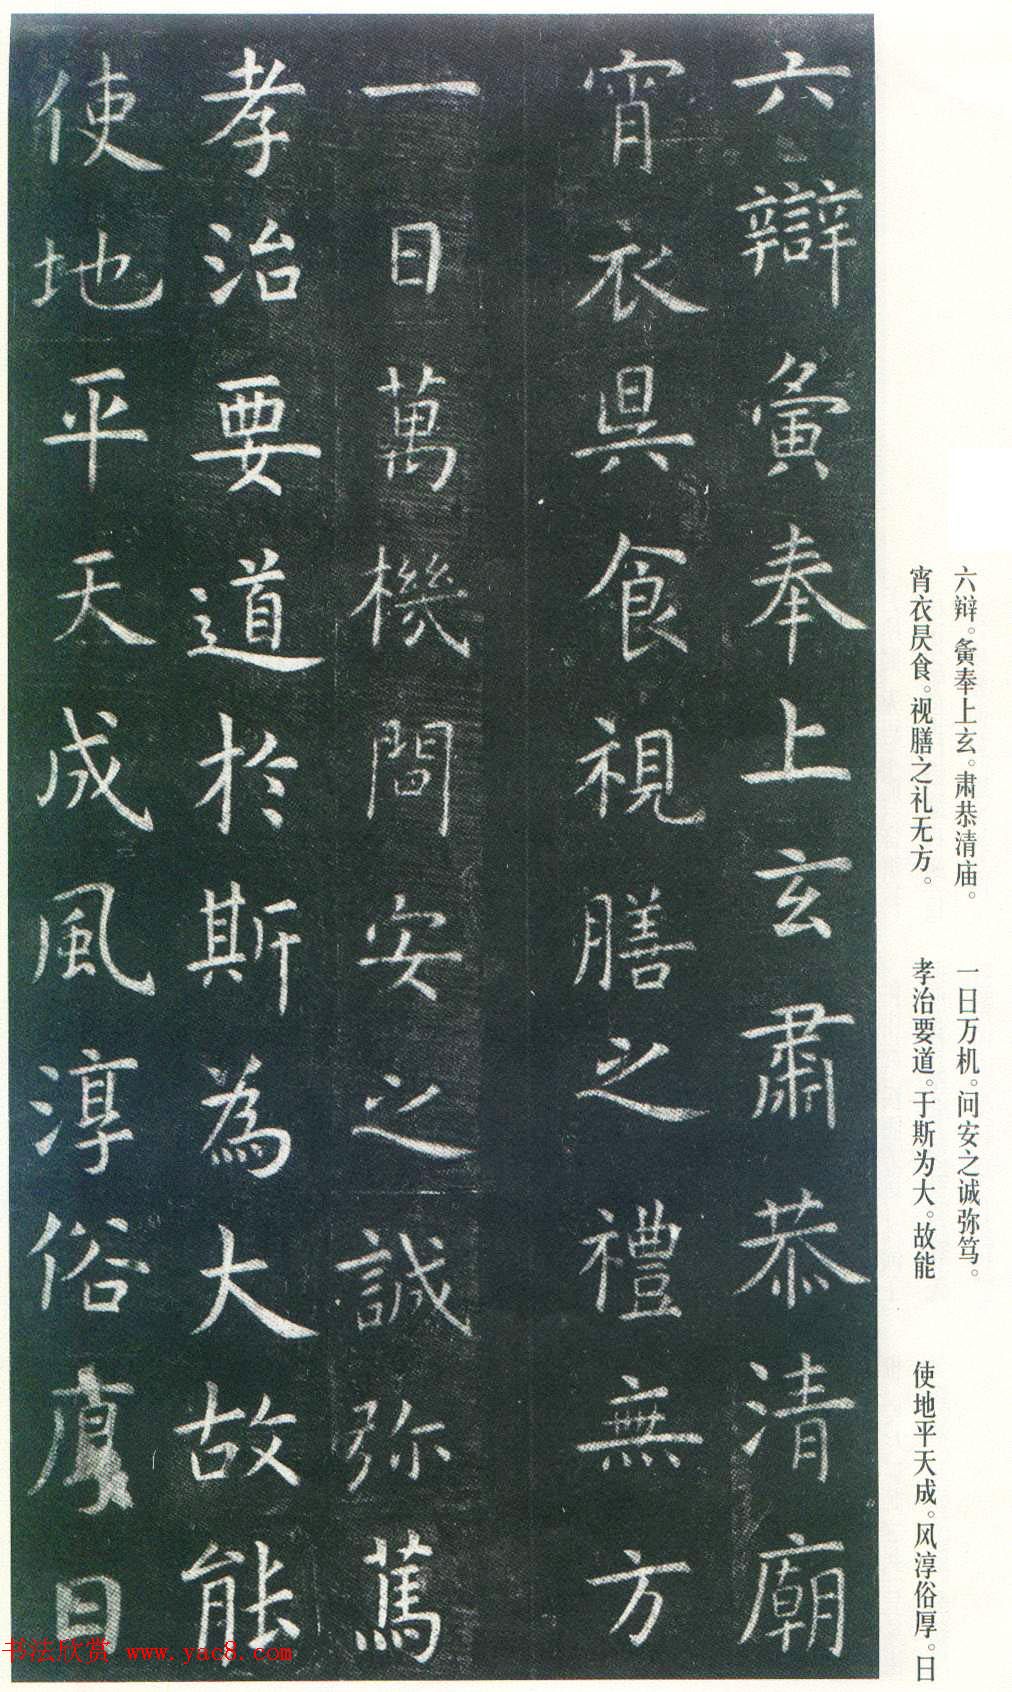 六辯夤奉上玄肅恭清廟
宵衣昃食視膳之禮無方
一日萬機問安之誠弥篤
孝治要道於斯為大故能
使地平天成風淳俗厚日
六辩。夤奉上玄。肃恭清庙。
宵衣昃食。视膳之礼无方。
一日万机。问安之诚弥笃。
孝治要道。于斯为大。故能
使地平天成。风淳俗厚。日
书法欣赏 www.yac8.com